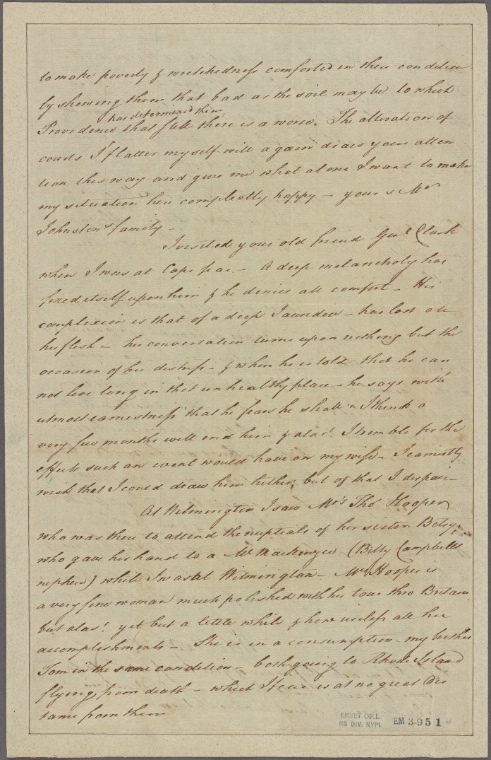 to make poverty & wretchedness comforted in their condition
by shewing them that bad as the soil may be to which
has determined them
Providence that still there is a worse. The alteration of
courts I flatter myself will again draw your atten
tion this way and give me what alone I want to make
my situation here compleatly happy – your & Mr
Johnston's family –
I visited your old friend Genl Clark
when I was at Cape fear – A deep melancholy has
fixed itself upon him & he denies all comfort – His
complexion is that of a deep Jaundice – has lost all
his flesh – his conversation turns upon nothing but the
occasion of his distress – & when he is told that he can
not live long in that unhealthy place – he says with
utmost earnestness that he fears he shall – I think a
very few months will end him & alas! I tremble for the
effects such an event would have on my wife – I earnestly
wish that I could draw him hither, but of that I despair –
At Wilmington I saw Mrs Thos Hooper
who was there to attend the nuptials of her sister Betsy
who gave her hand to a Mr Mackenzie (Billy Campbells
nephew) while I was at Wilmington – Mrs Hooper is
a very fine woman much polished with her tour thro Britain
but alas! yet but a little while & how useless all her
accomplishments – She is in a consumption – my brother
Tom in the same condition – both going to Rhode Island
flying from death – which I fear is at no great dis
tance from them
EMMET COLL.
MS DIV. NYPL
EM 3951